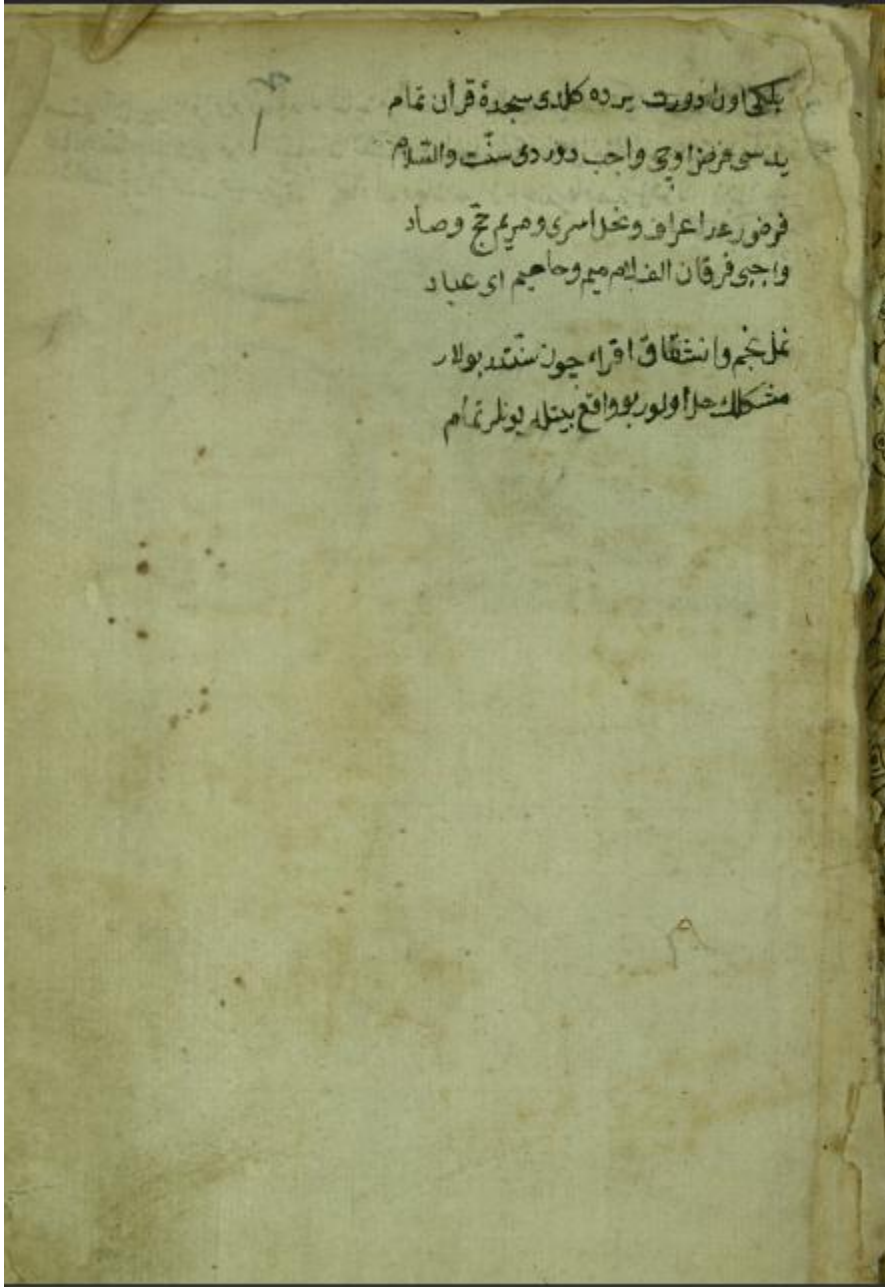 بلكل اون دورت يرده كلدى سجدۀ قرآن تمام
يدسى فرض اوچى واجب دوردى سنّت والسّلام
فرضى رعد اعراف ونحل اسرى ومريم حجّ وصاد
واجبى فرقان الف لام ميم وحاميم اى عباد
نمل نجم وانشقاق اقراء چون سنّتدر بولار
مشكلك حل اولور بو واقع بيتله بونلر تمام